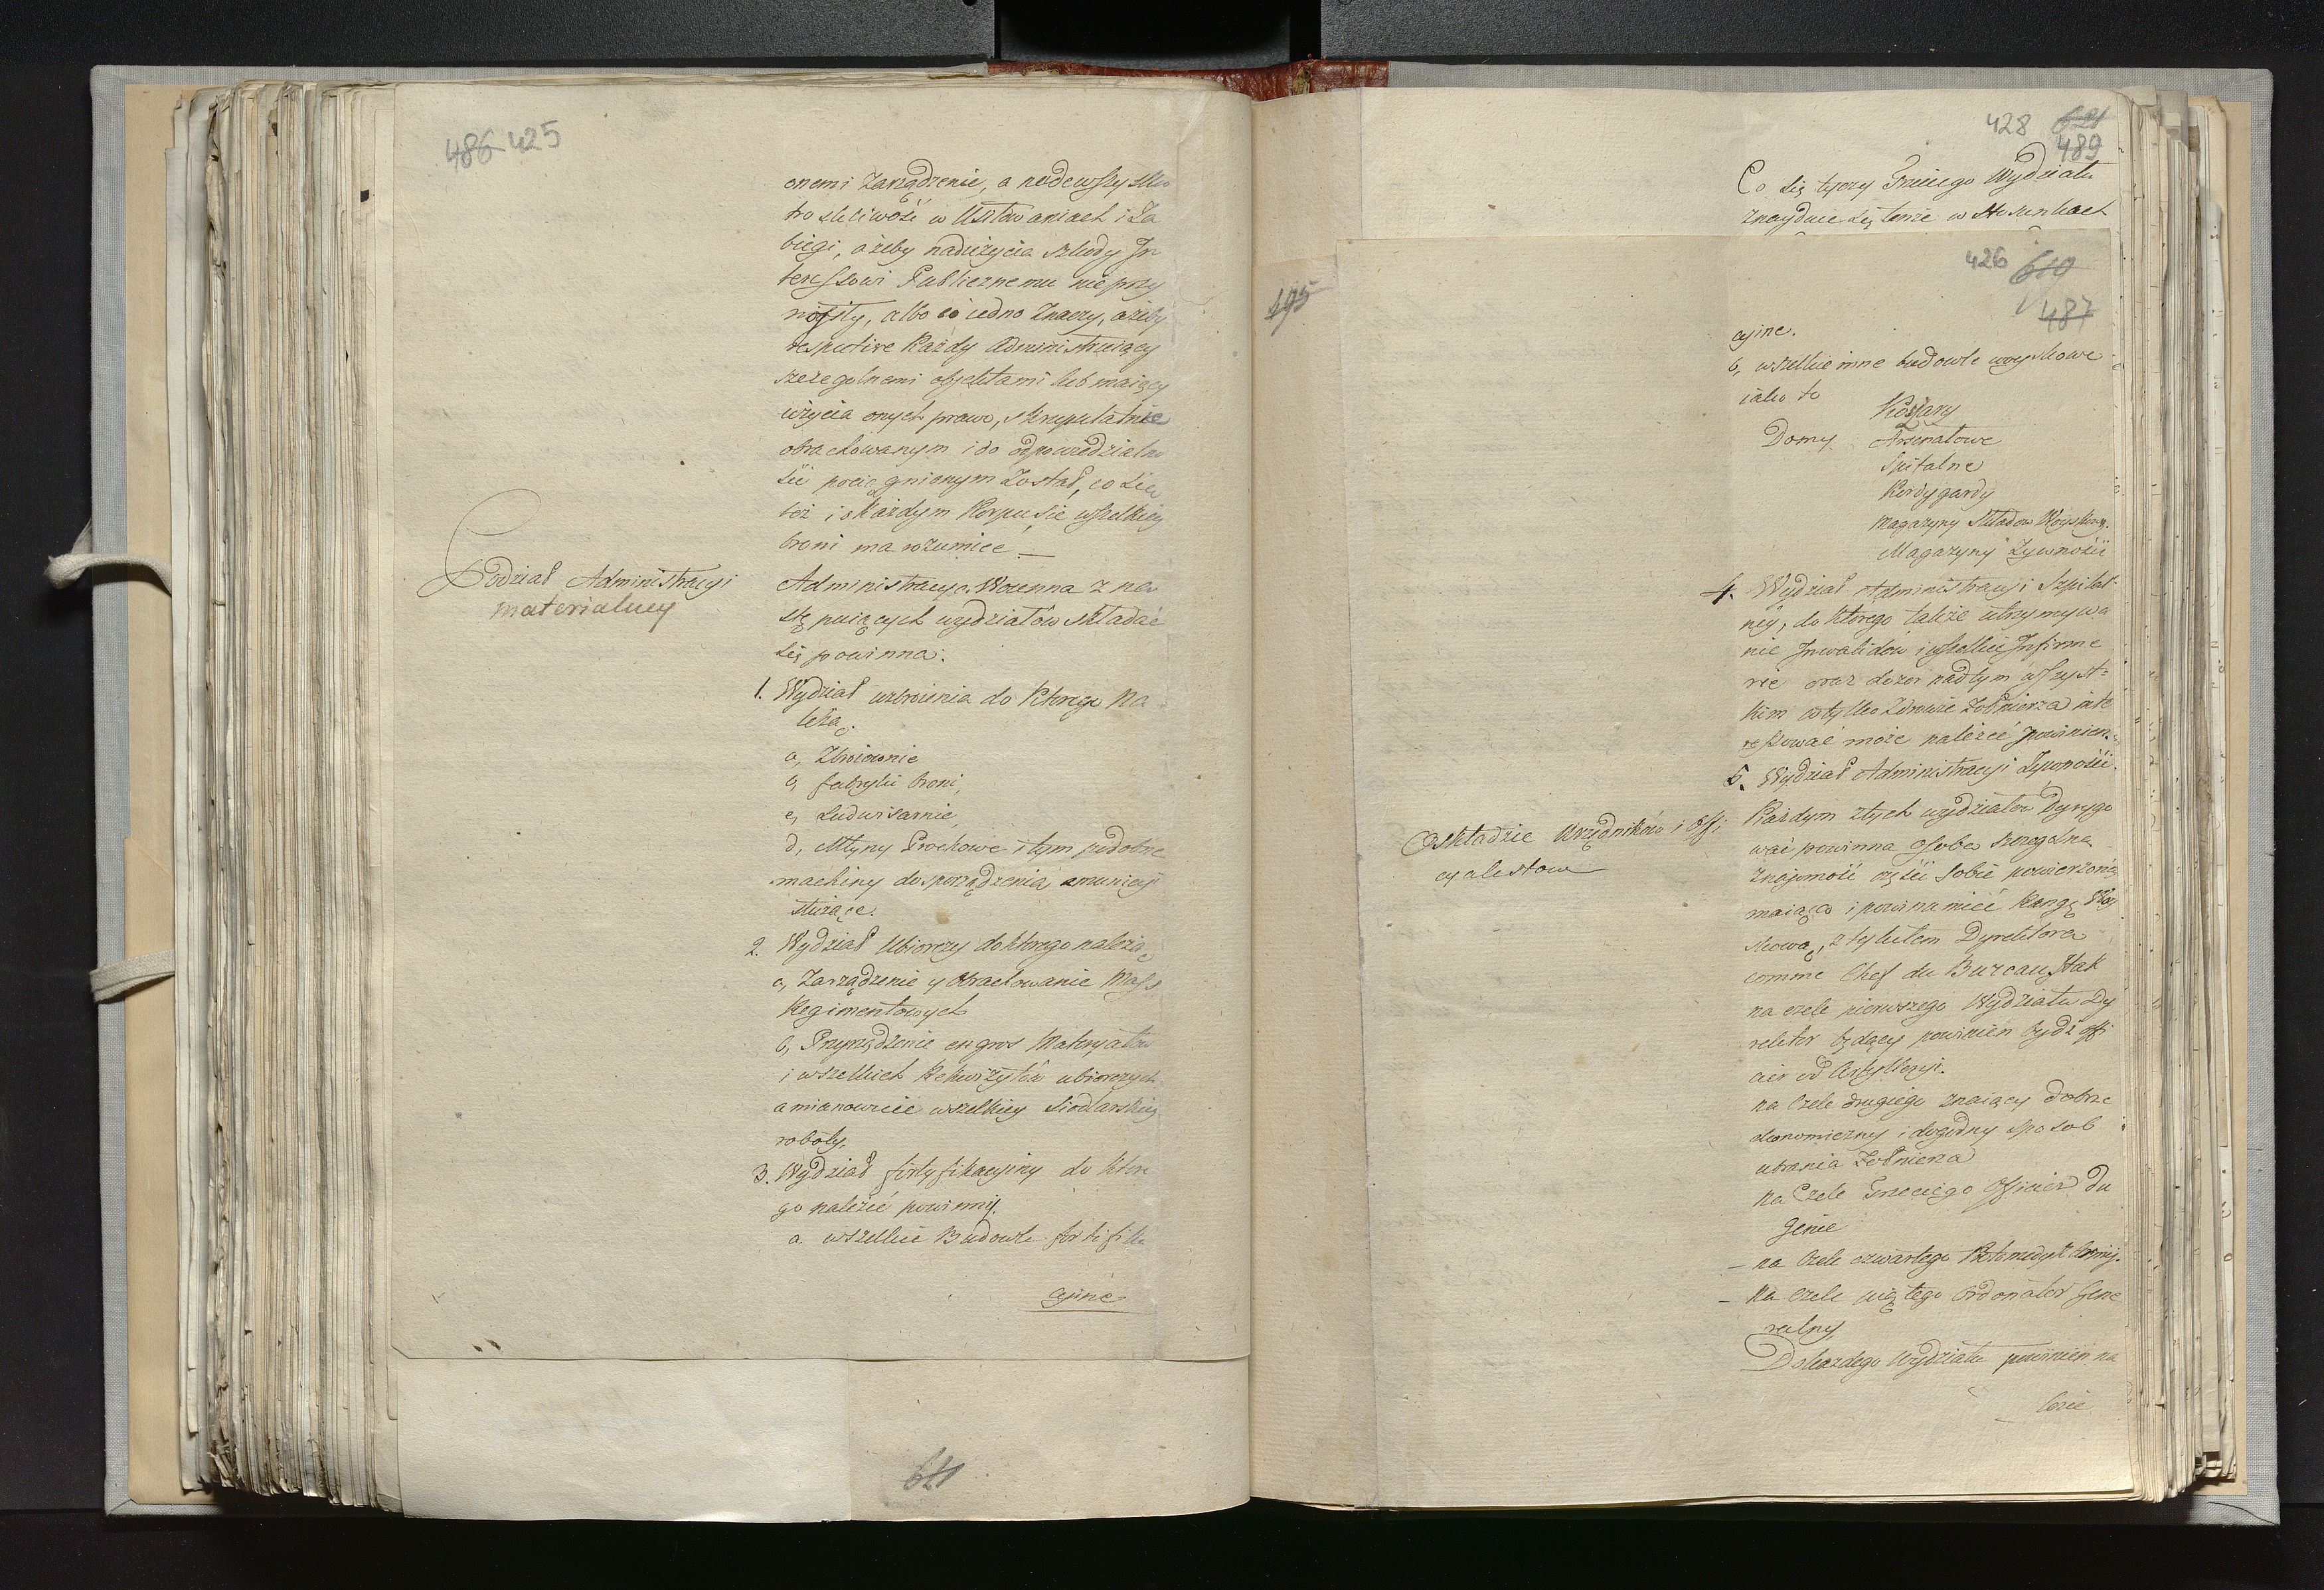 486 425
onemi Zarządzenie, a nadewszystko
troskliwość w Usiłowaniach i Za
biegi, ażeby nadużycia szkody In
teressowi Publicznemu nie przy
niosły, albo co iedno Znaczy, ażeby
respective Każdy Administruiący
szczegolnemi objektami lub maiący
użycia onych prawo, skrupulatnie
obrachowanym i do odpowiedzialno
ści pociągnionym Został, co się
też i o każdym Korpusie wszelkiey
broni ma rozumieć —
Podział Administracyi
materialney
Administracya Woienna z na
stępuiących wydziałow składać
się powinna:
1. Wydział uzbroienia do Ktorego Na
leżą.
a, Zbroiownie
b, fabryki broni,
c, Ludwisarnie,
d, Młyny Prochowe i tym podobne
machiny do sporządzenia amunicyi
służące.
2. Wydział Ubiorczy do ktorego należą
a, Zarządzenie y Obrachowanie Mass
Regimentowych
b, Przyrządzenie en gros Materyałow
i wszelkich Rekwizytów ubiorczych
a mianowicie wszelkiey Siodlarskiey
roboty.
3. Wydział fortyfikacyiny do ktore
go należeć powinny.
a. wszelkie Budowle fortifika
cyine
611
495
428 621
489
Co się tyczy Trzeciego Wydziału
znayduie się tenże w Stosunkach
426 610
487
cyine.
b, wszelkie inne budowle woyskowe
iako to
Koszary
Domy Arsenałowe
Spitalne
Kordygardy
Magazyny Składow Woyskow.
Magazyny Żywności
4. Wydział Administracyi Szpital
ney, do ktorego także utrzymywa
nie Inwalidow i wszelkie Infirme
rie oraz dozor nad tym wszyst=
kim co tylko Zdrowie Żołnierza inte
ressować może należeć powinien.
5. Wydział Administracyi Żywności.
O składzie Urzędników i Offi
cyalistow
Każdym z tych wydziałow Dyrygo
wać powinna Osoba szczegolna
znajomość części sobie powierzoney
maiąca i powinna mieć Rangę Woy
skową, z tytułem Dyrektora
comme Chef du Bureau, Itak
na czele pierwszego Wydziału Dy
rektor będący powinien bydź offi
cier od Artylleryi.
na Czele drugiego znaiący dobrze
ekonomiczny i dogodny sposob
ubrania Żołnierza
na Czele Trzeciego Officier du
Genie
— na Czele czwartego Protomedyk Armij.
— Na Czele piątego Ordonator Gene
ralny,
Do każdego Wydziału powinien na
leżeć